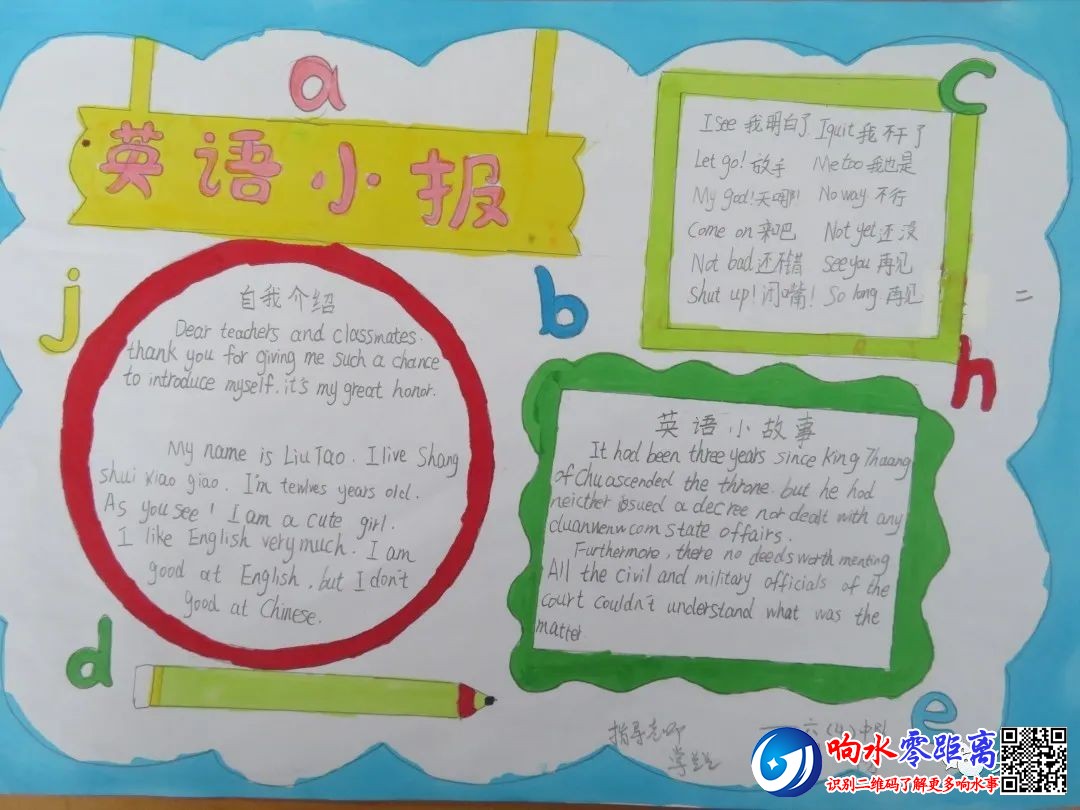 a
英语小报
c
I see 我明白了. I quit 我不干了
Let go! 放手 Me too 我也是
My god! 天哪! No way 不行
Come on 来吧 Not yet 还没
Not bad 还不错 See you 再见
Shut up! 闭嘴! So long 再见
=
j
b
h
自我介绍
Dear teachers and classmates.
thank you for giving me such a chance
to introduce myself. it's my great honor.
My name is Liu Tao. I live Shang
shui xiao qiao. I'm tewlves years old.
As you see! I am a cute girl.
I like English very much. I am
good at English, but I don't
good at Chinese.
英语小故事
It had been three years since king Zhuang
of Chu ascended the throne. but he had
neicther issued a decree nor dealt with any
state affairs.
Furthermore, there no deeds worth menting
All the civil and military officials of the
court couldn't understand what was the
matter.
d
e
指导老师
学生
六(4)中队
响水零距离
识别二维码了解更多响水事